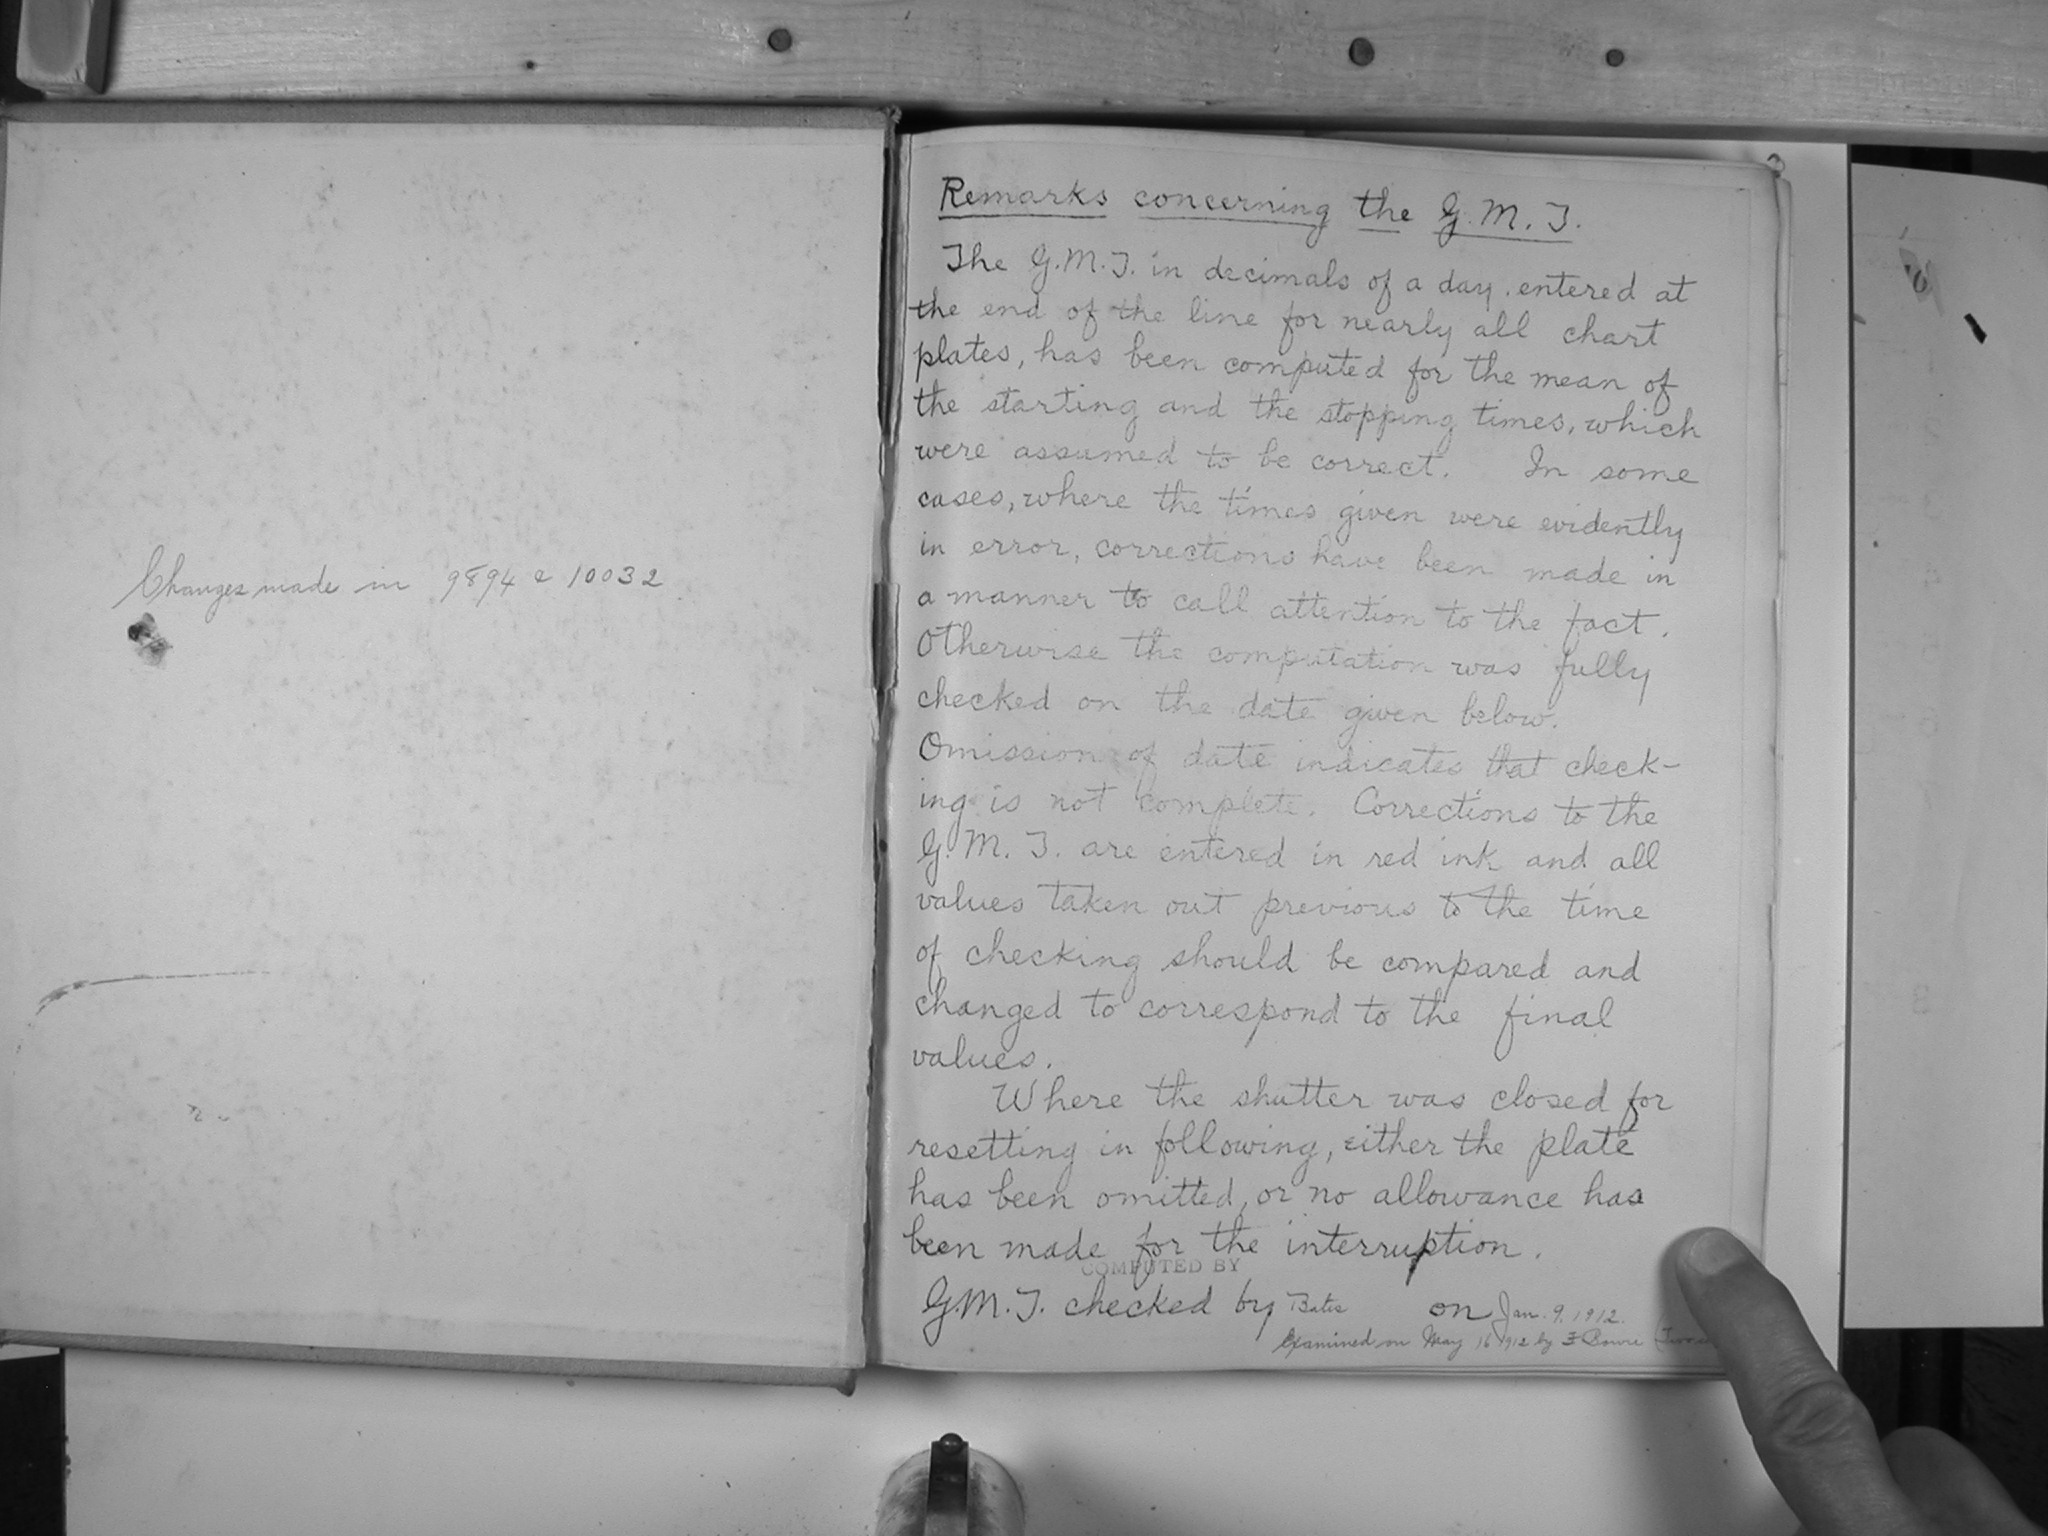 Changes made in 9894 & 10032
Remarks concerning the G.M.T.
The G.M.T. in decimals of a day, entered at
the end of the line for nearly all chart
plates, has been computed for the mean of
the starting and the stopping times, which
were assumed to be correct. In some
cases, where the times given were evidently
in error, corrections have been made in
a manner to call attention to the fact.
Otherwise the computation was fully
checked on the date given below.
Omission of date indicates that check-
ing is not complete. Corrections to the
G.M.T. are entered in red ink and all
values taken out previous to the time
of checking should be compared and
changed to correspond to the final
values.
Where the shutter was closed for
resetting in following, either the plate
has been omitted, or no allowance has
been made for the interruption.
COMPUTED BY
G.M.T. checked by Bates on Jan. 9, 1912.
Examined on May 16 1912 by